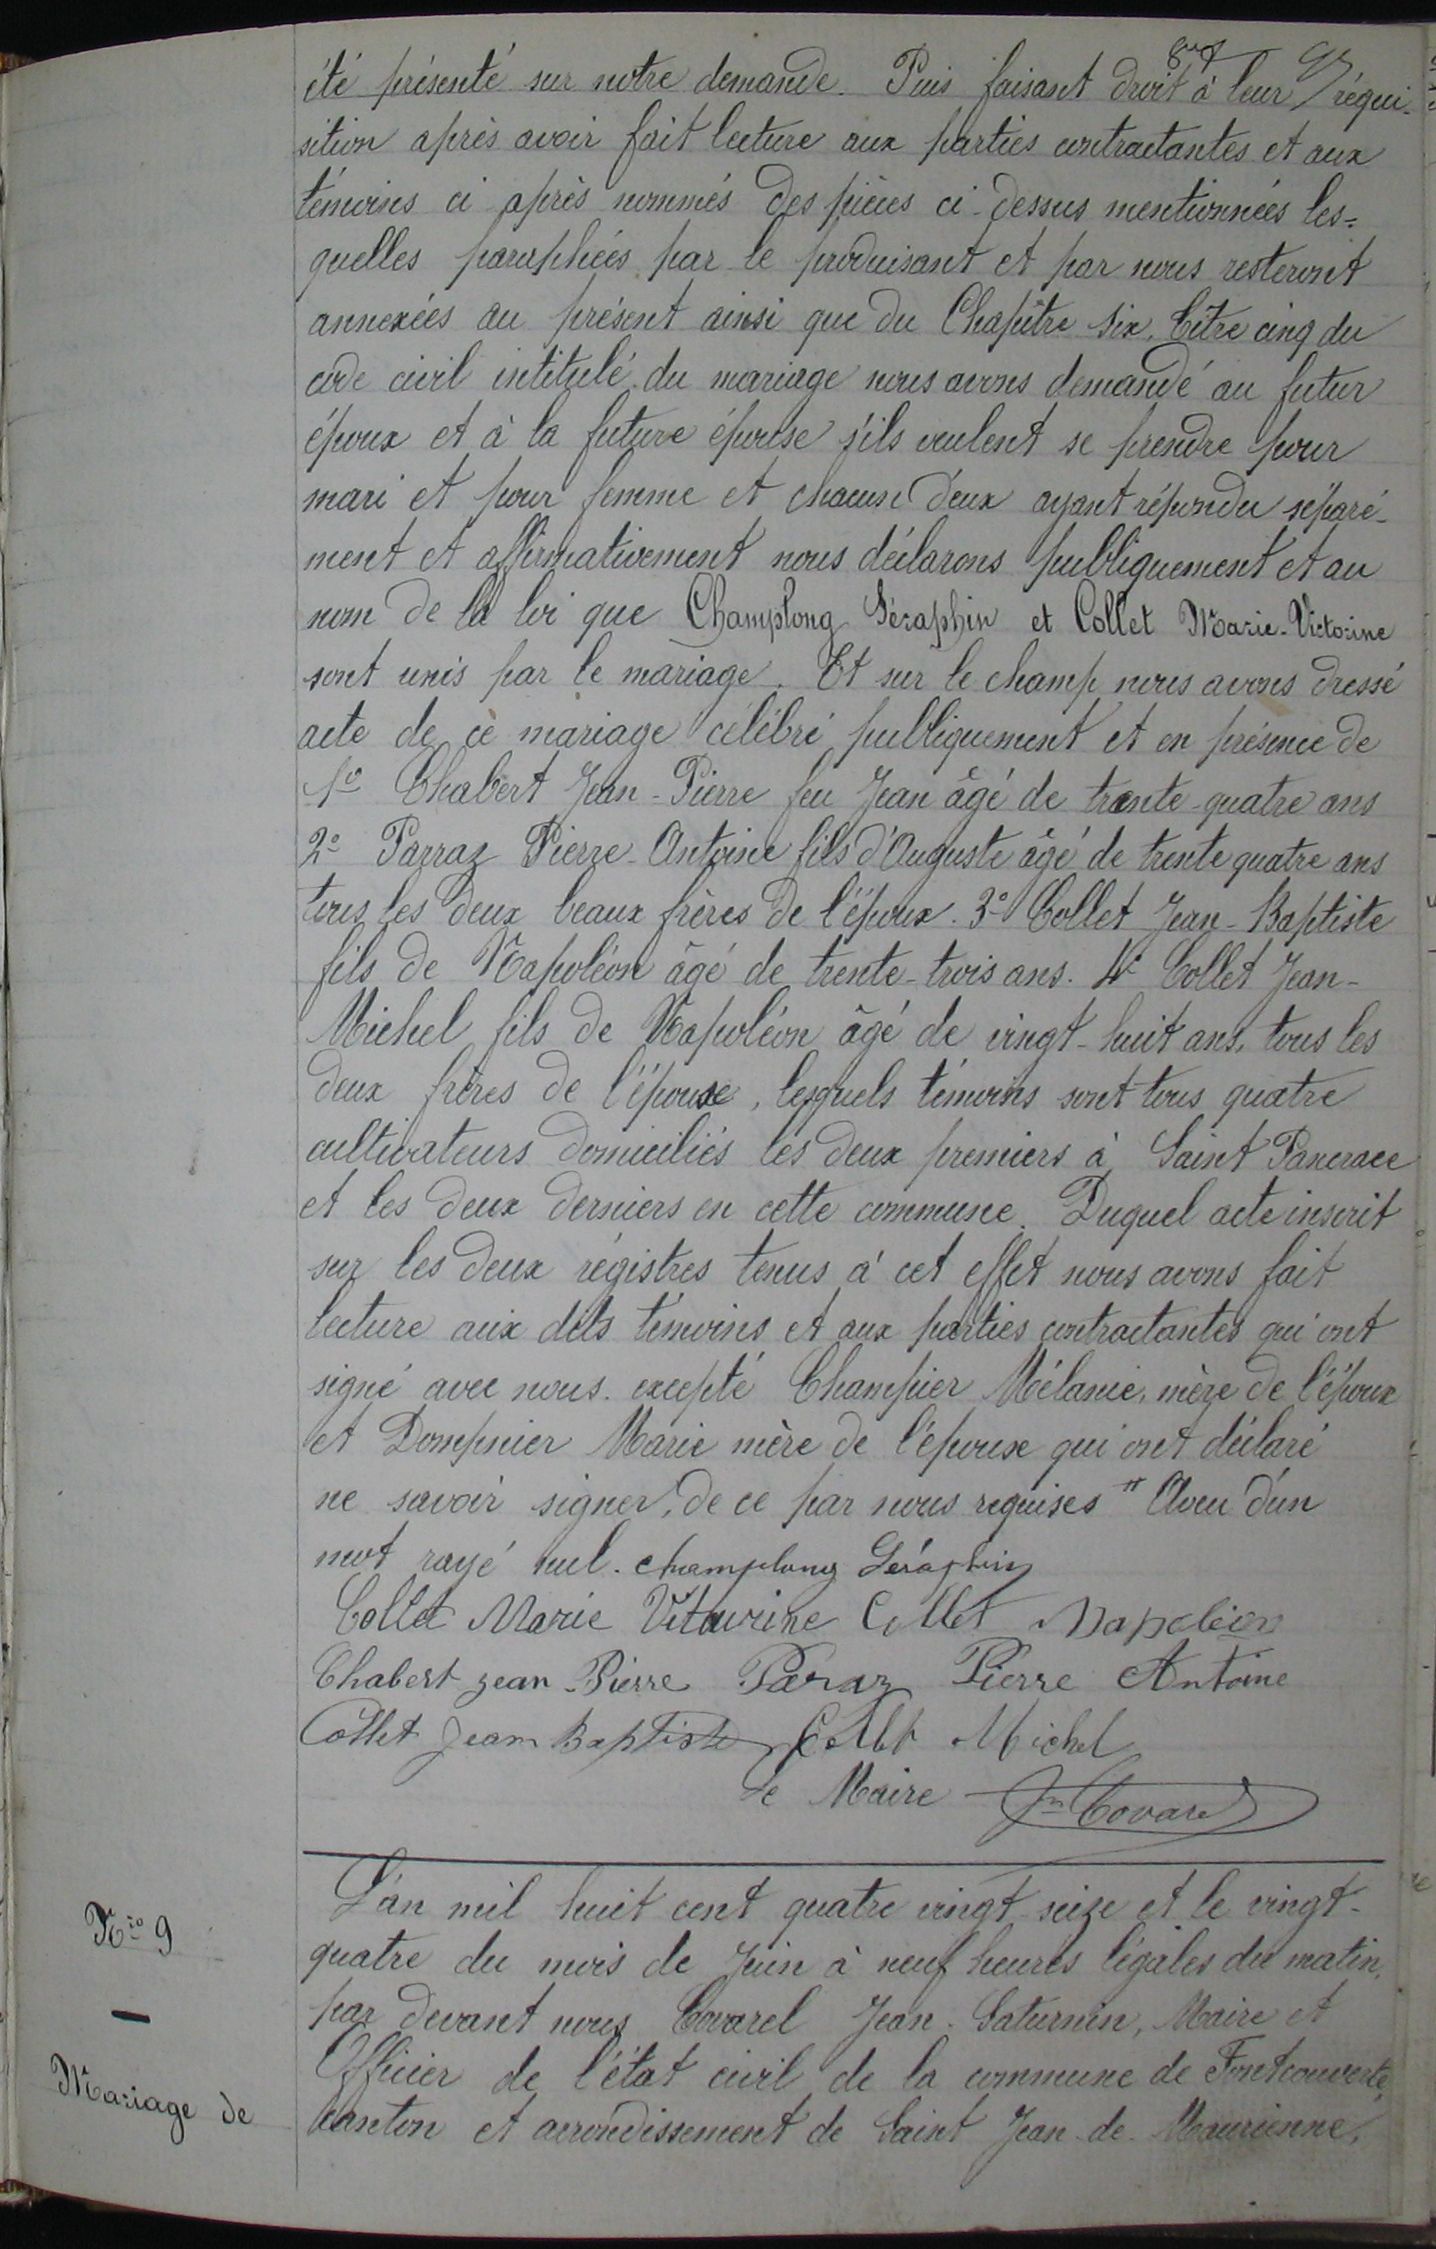 été présenté sur notre demande. Puis faisant droit à leur réqui-
sition après avoir fait lecture aux parties contractantes et aux
témoins ci après nommés des pièces ci-dessus mentionnées les=
quelles paraphées par le produisant et par nous resteront
annexées au présent ainsi que du Chapître six, titre cinq du
code civil intitulé du mariage nous avons demandé au futur
époux et à la future épouse s'ils veulent se prendre pour
mari et pour femme et chacun d'eux ayant répondu séparé-
ment et affirmativement nous déclarons publiquement et au
nom de la loi que Champlong Séraphin et Collet Marie-Victorine
sont unis par le mariage. Et sur le champ nous avons dressé
acte de ce mariage célébré publiquement et en présence de
1º Chabert Jean-Pierre feu Jean âgé de trente-quatre ans
2º Parraz Pierre-Antoine fils d'Auguste âgé de trente quatre ans
tous les deux beaux frères de l'époux. 3º Collet Jean-Baptiste
fils de Napoléon âgé de trente-trois ans. 4º Collet Jean-
Michel fils de Napoléon âgé de vingt-huit ans, tous les
deux frères de l'épouse, lesquels témoins sont tous quatre
cultivateurs domiciliés les deux premiers à Saint Pancrace
et les deux derniers en cette commune. Duquel acte inscrit
sur les deux régistres tenus à cet effet nous avons fait
lecture aux dits témoins et aux parties contractantes qui ont
signé avec nous excepté Champier Mélanie, mère de l'époux
et Dompnier Marie mère de l'épouse qui ont déclaré
ne savoir signer, de ce par nous requises " Aveu d'un
mot rayé nul. Champlong Séraphin
Collet Marie Vitourine Collet Napoléon
Chabert Jean-Pierre Parraz Pierre Antoine
Collet Jean Baptiste Collet Michel
Le Maire Jn Covarel
Nro 9
Mariage de
L'an mil huit cent quatre vingt-seize et le vingt-
quatre du mois de Juin à neuf heures légales du matin,
par devant nous Covarel Jean-Saturnin, Maire et
Officier de l'état civil de la commune de Fontcouverte,
canton et arrondissement de Saint Jean-de-Maurienne,